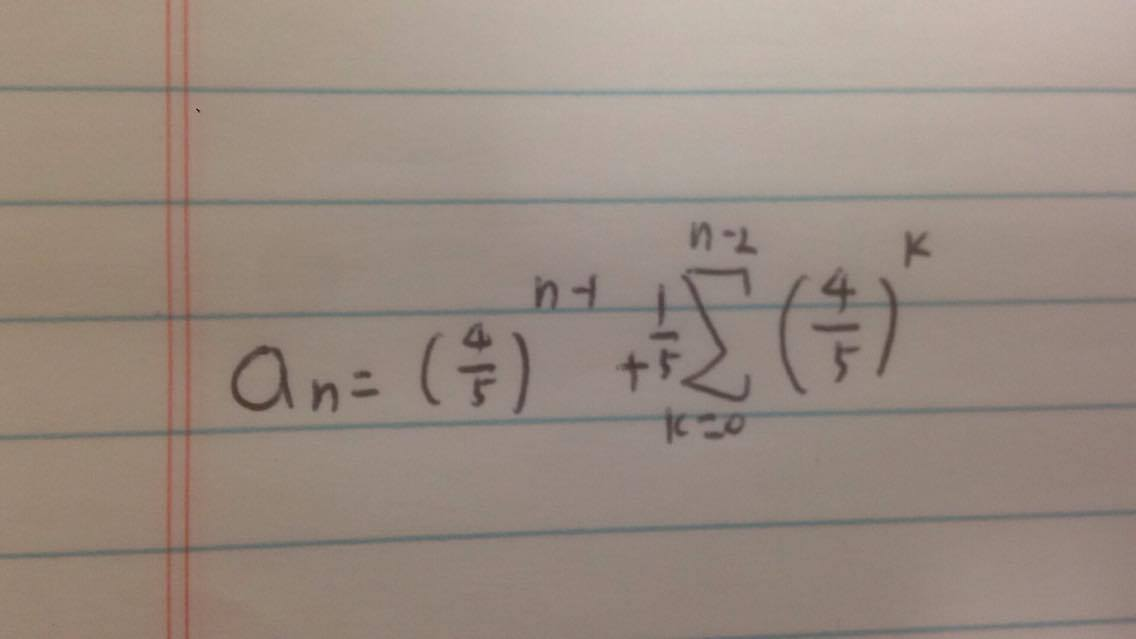 aₙ = (4/5)ⁿ⁻¹ + 1/5 ∑_{k=0}^{n-2} (4/5)^k